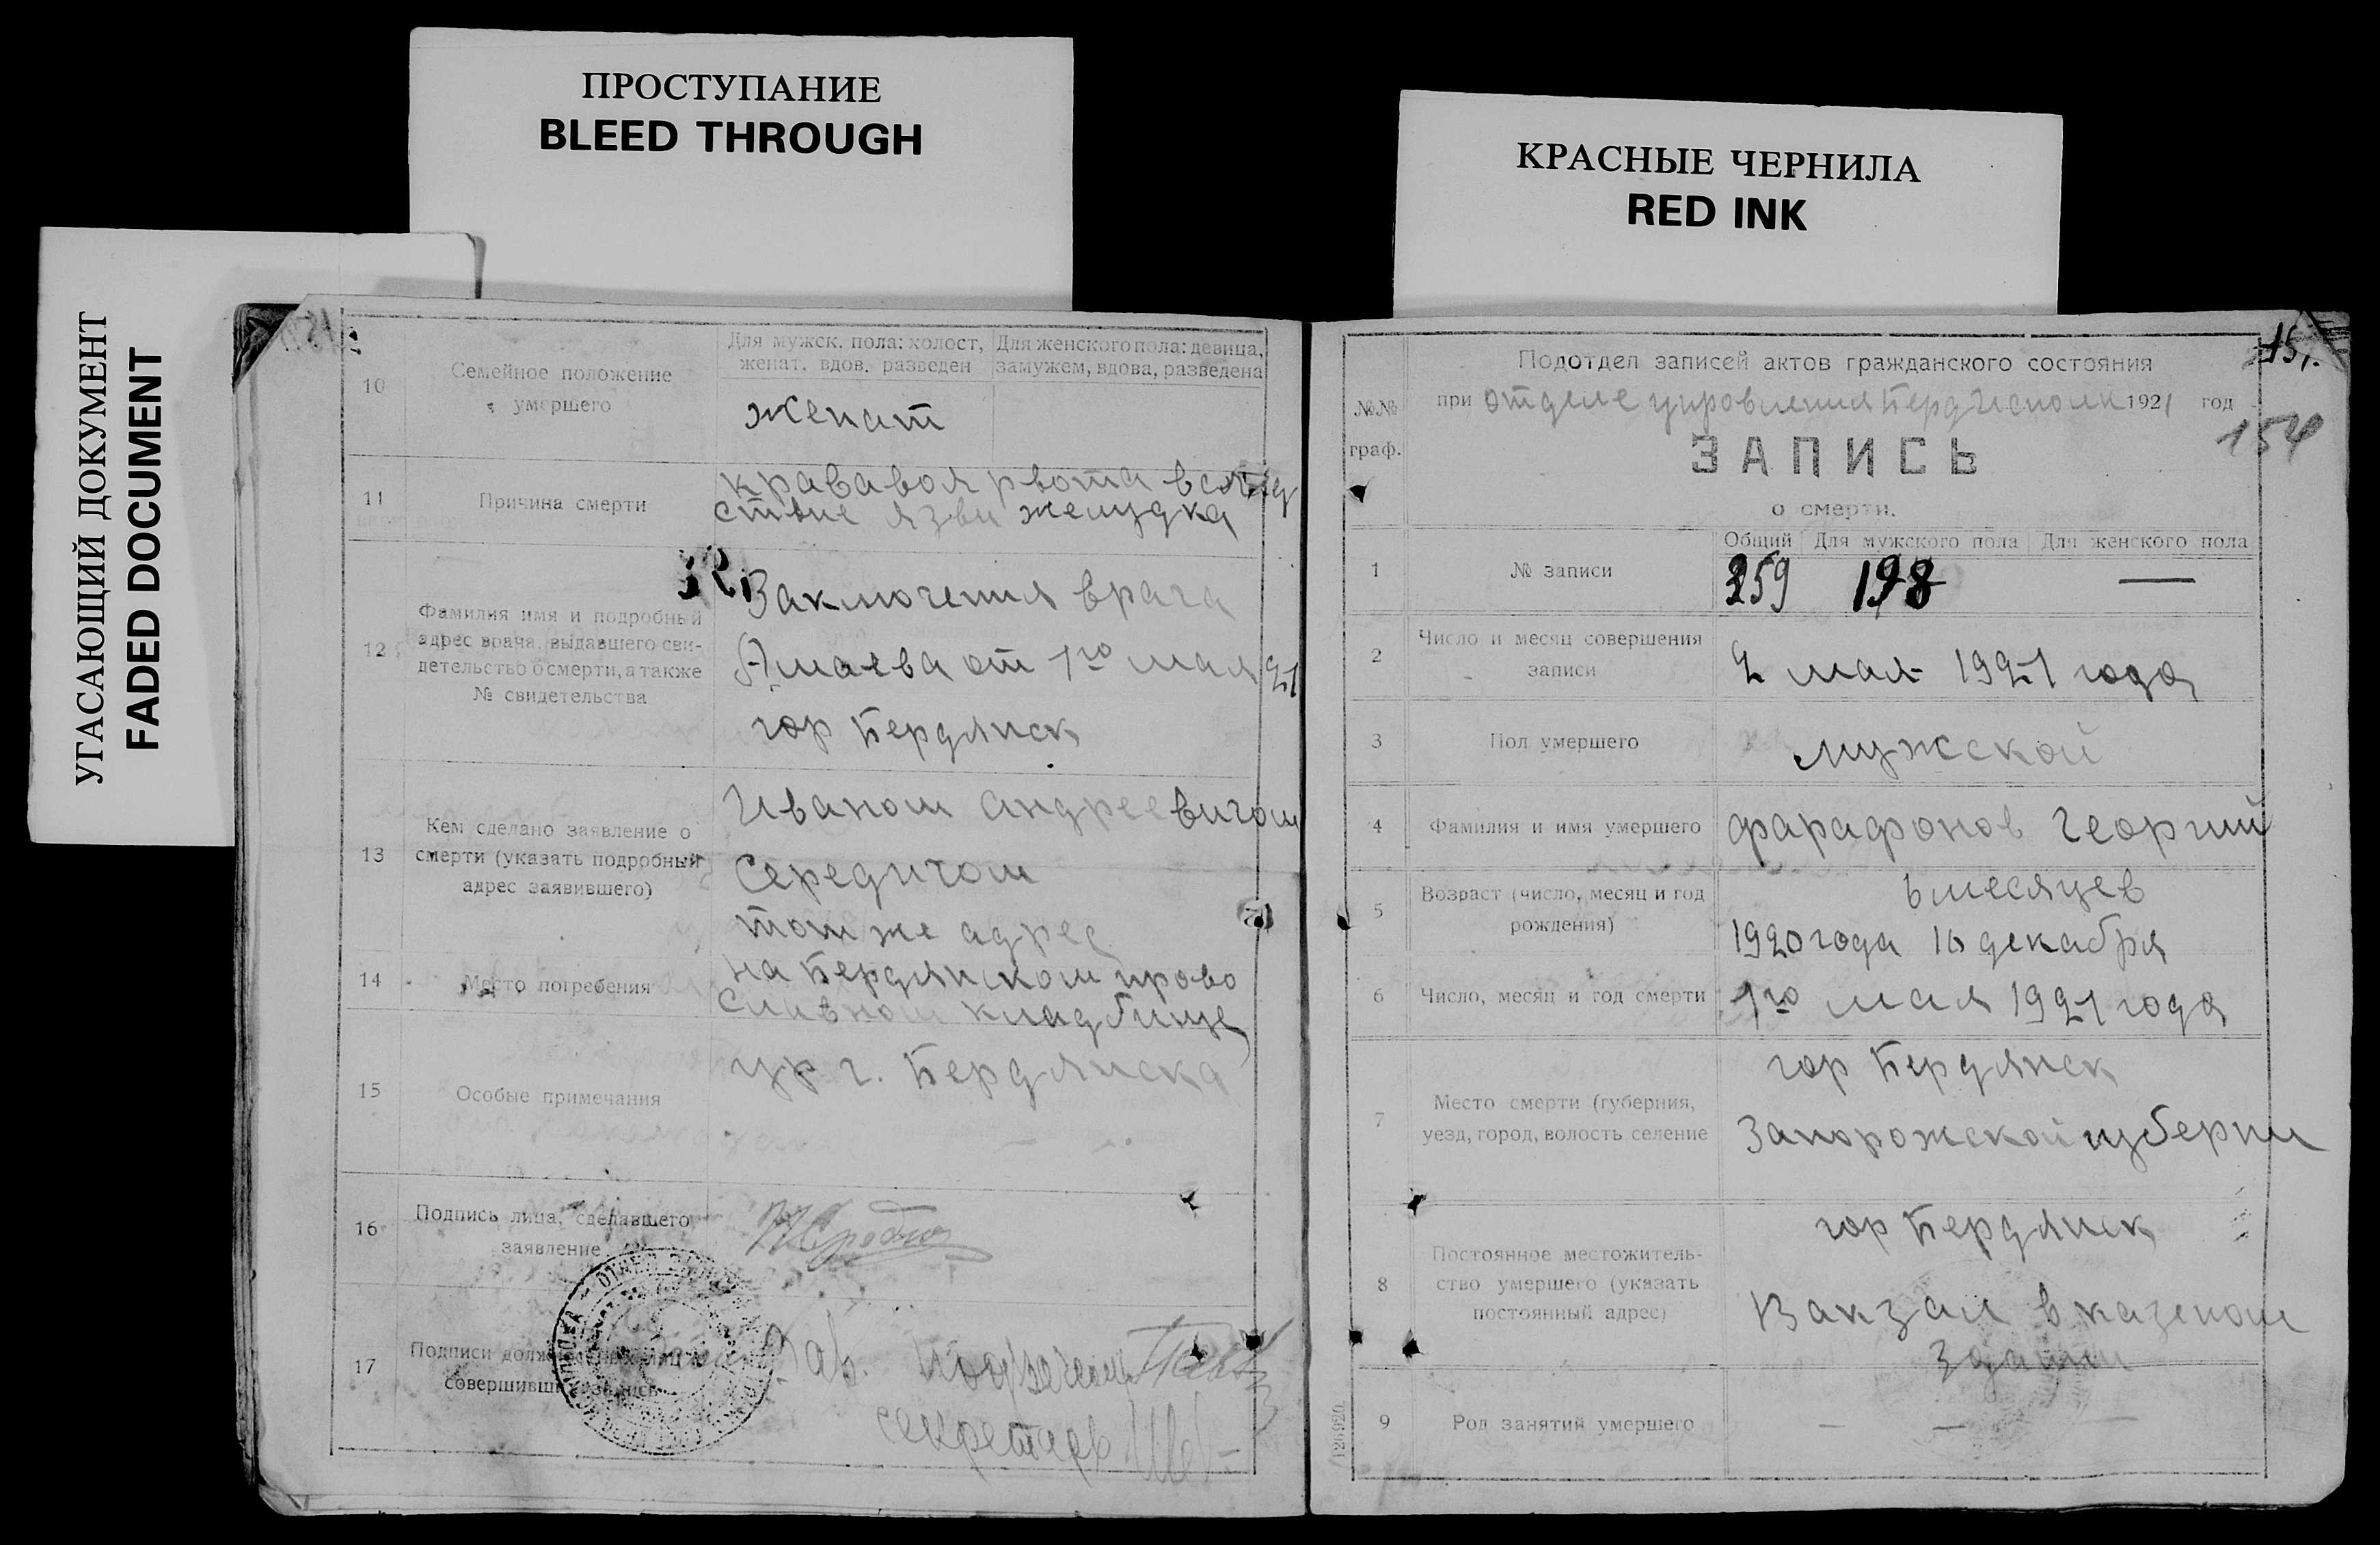 ПРОСТУПАНИЕ
BLEED THROUGH
КРАСНЫЕ ЧЕРНИЛА
RED INK
УГАСАЮЩИЙ ДОКУМЕНТ
FADED DOCUMENT
10
Семейное положение
умершего
Для мужск. пола: холост,
женат, вдов, разведен
Для женского пола: девица,
замужем, вдова, разведена
женат
11
Причина смерти
крававоя рвота вслед
ствие язви желудка
12
Фамилия имя и подробный
адрес врача, выдавшего сви-
детельство о смерти, а также
№ свидетельства
Заключения врача
от 1го мая 21
гор Бердянск
13
Кем сделано заявление о
смерти (указать подробный
адрес заявившего)
Иваном Андреевичом
Середичом
том же адрес
14
Место погребения
на Бердянском прово
славном кладбище
15
Особые примечания
ур г. Бердянска
16
Подпись лица, сделавшего
заявление
17
Подписи должностных лиц
совершивших запись
Зав.
секретарь
15
154
№№
граф.
Подотдел записей актов гражданского состояния
при отделе упровления Бердисполк 1921 год
ЗАПИСЬ
о смерти.
1
№ записи
Общий Для мужского пола Для женского пола
259 198 —
2
Число и месяц совершения
записи
2 мая 1921 года
3
Пол умершего
мужской
4
Фамилия и имя умершего
Фарафонов Георгий
5
Возраст (число, месяц и год
рождения)
6 месяцев
1920 года 16 декабря
6
Число, месяц и год смерти
1го мая 1921 года
7
Место смерти (губерния,
уезд, город, волость селение
гор Бердянск
Запорожской губерни
8
Постоянное местожитель-
ство умершего (указать
постоянный адрес)
гор Бердянск
Вакзал в казеном
здании
9
Род занятий умершего
— — —